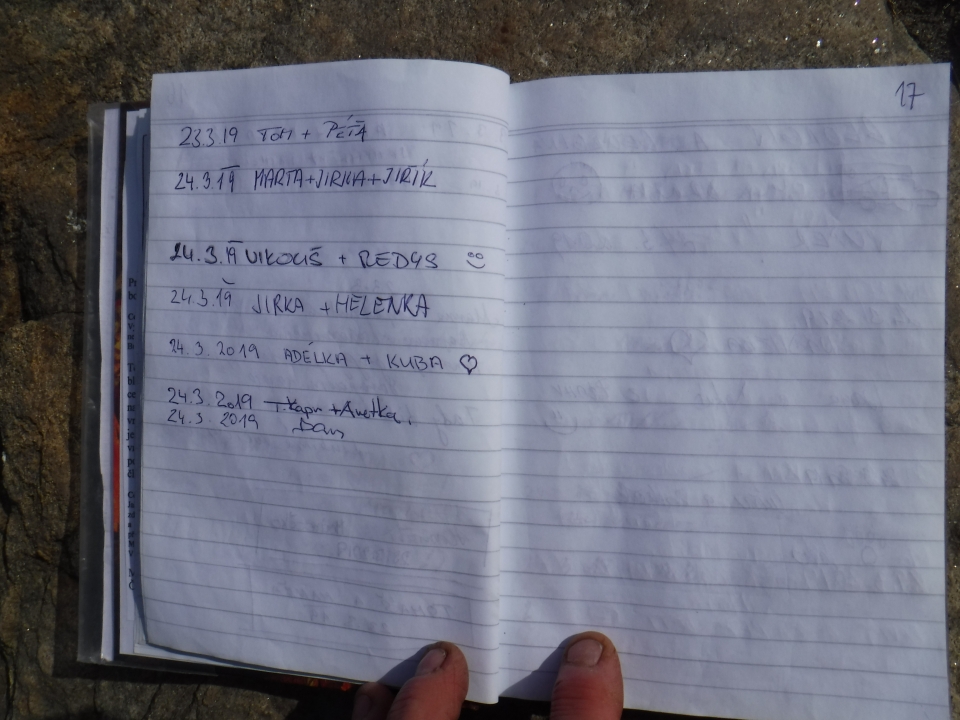 17
23.3.19 TOM + PÉŤA
24.3.19 MARTA+JIRKA+JIŘÍK
24.3.19 VIKOUŠ + REDYS
24.3.19 JIRKA + HELENKA
24.3.2019 ADÉLKA + KUBA ♡
24.3.2019 + Anetka.
24.3.2019 Dan